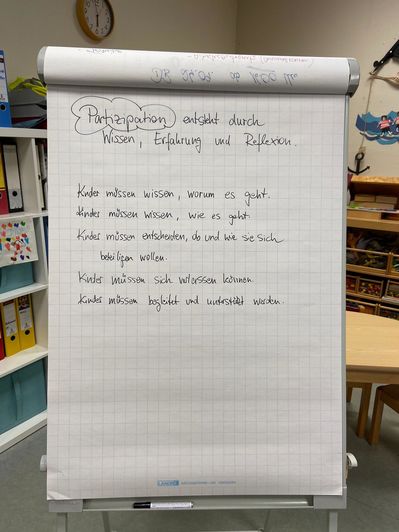 Partizipation entsteht durch
Wissen, Erfahrung und Reflexion.
Kinder müssen wissen, worum es geht.
Kinder müssen wissen, wie es geht.
Kinder müssen entscheiden, ob und wie sie sich
beteiligen wollen.
Kinder müssen sich können.
Kinder müssen begleitet und unterstützt werden.